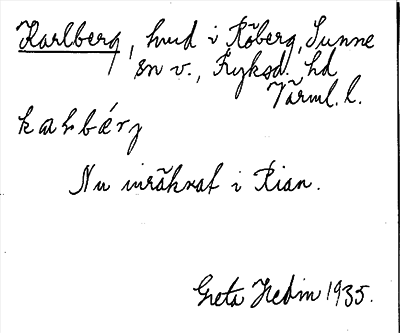 Karlberg, hmd i Råberg, Sunne
sn v., Fryksd. hd
Värml. l.
kaʀbárj
Nu inräknat i Rian.
Greta Hedin 1935.